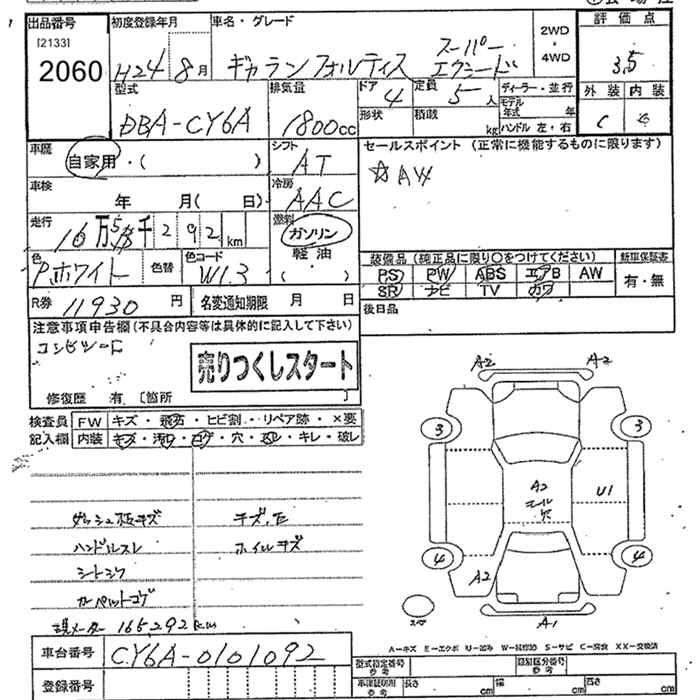 出品番号
[2133]
2060
初度登録年月
H24 8月
車名・グレード
ギャランフォルティス スーパーエクシード
2WD
・
4WD
評価点
3.5
外装 内装
C
型式
DBA-CY6A
排気量
1800cc
ドア
4
定員
5人
形状
積載
kg
ディーラー・並行
モデル年式 年
ハンドル 左・右
車歴
自家用・( )
シフト
AT
車検
年 月(日)
冷房
AAC
走行
16万5千292km
燃料
ガソリン
軽油
( )
色
Pホワイト
色替
色コード
W13
R券
11930円
名変通知期限 月 日
セールスポイント(正常に機能するものに限ります)
☆AW
装備品(純正品に限り○をつけてください)
PS PW ABS エアB AW
SR ナビ TV カワ
新車保証書
有・無
後日品
注意事項申告欄(不具合内容等は具体的に記入して下さい)
売りつくしスタート
修復歴 有〔箇所 〕
検査員記入欄
FW キズ・飛石・ヒビ割・リペア跡・×要
内装 キズ・汚れ・コゲ・穴・スレ・キレ・破レ
ダッシュ板キズ
ハンドルスレ
カーペットコゲ
現メーター165292km
ホイルキズ
A2
A2
3
3
A2
U1
4
4
A2
A1
スペア
A=キズ E=エクボ U=凹み W=補修跡 S=サビ C=腐食 XX=交換済
車台番号
CY6A-0101092
登録番号
型式指定番号
参考
類別区分番号
参考
車庫証明用
参考
長さ cm
幅 cm
高さ cm